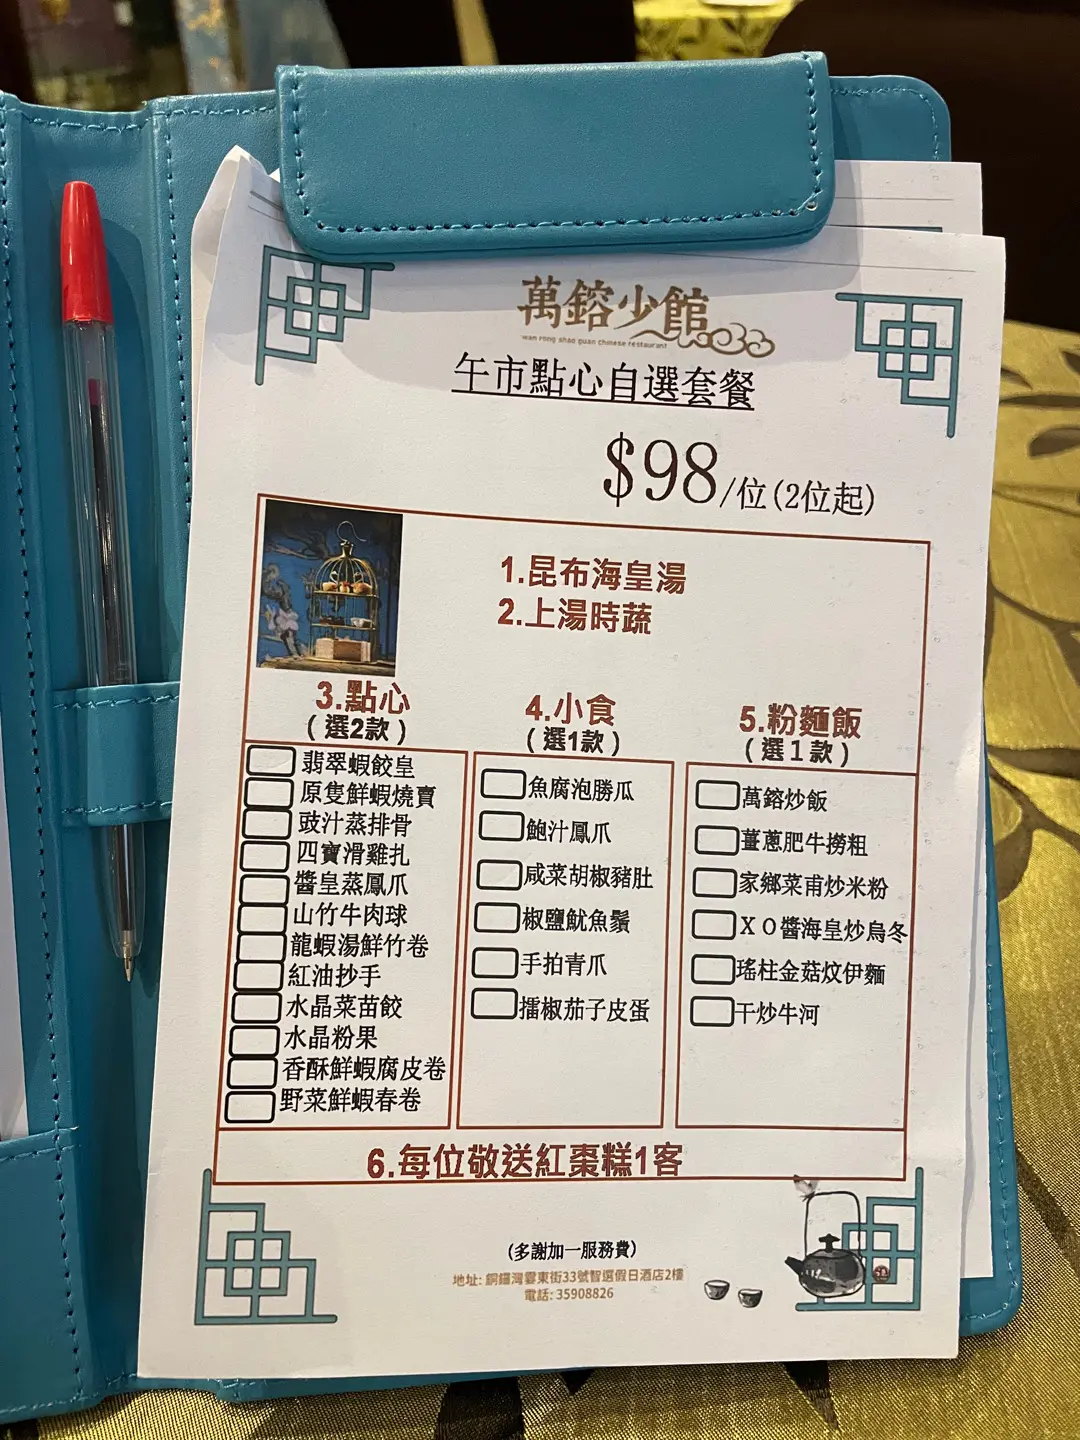 萬鎔少館
wan rong shao guan chinese restaurant
午市點心自選套餐
$98/位(2位起)
1.昆布海皇湯
2.上湯時蔬
3.點心
(選2款)
翡翠蝦餃皇
原隻鮮蝦燒賣
豉汁蒸排骨
四寶滑雞扎
醬皇蒸鳳爪
山竹牛肉球
龍蝦湯鮮竹卷
紅油抄手
水晶菜苗餃
水晶粉果
香酥鮮蝦腐皮卷
野菜鮮蝦春卷
4.小食
(選1款)
魚腐泡勝瓜
鮑汁鳳爪
咸菜胡椒豬肚
椒鹽魷魚鬚
手拍青爪
擂椒茄子皮蛋
5.粉麵飯
(選1款)
萬鎔炒飯
薑蔥肥牛撈粗
家鄉菜甫炒米粉
XO醬海皇炒烏冬
瑤柱金菇炆伊麵
干炒牛河
6.每位敬送紅棗糕1客
(多謝加一服務費)
地址: 銅鑼灣霎東街33號智選假日酒店2樓
電話: 35908826